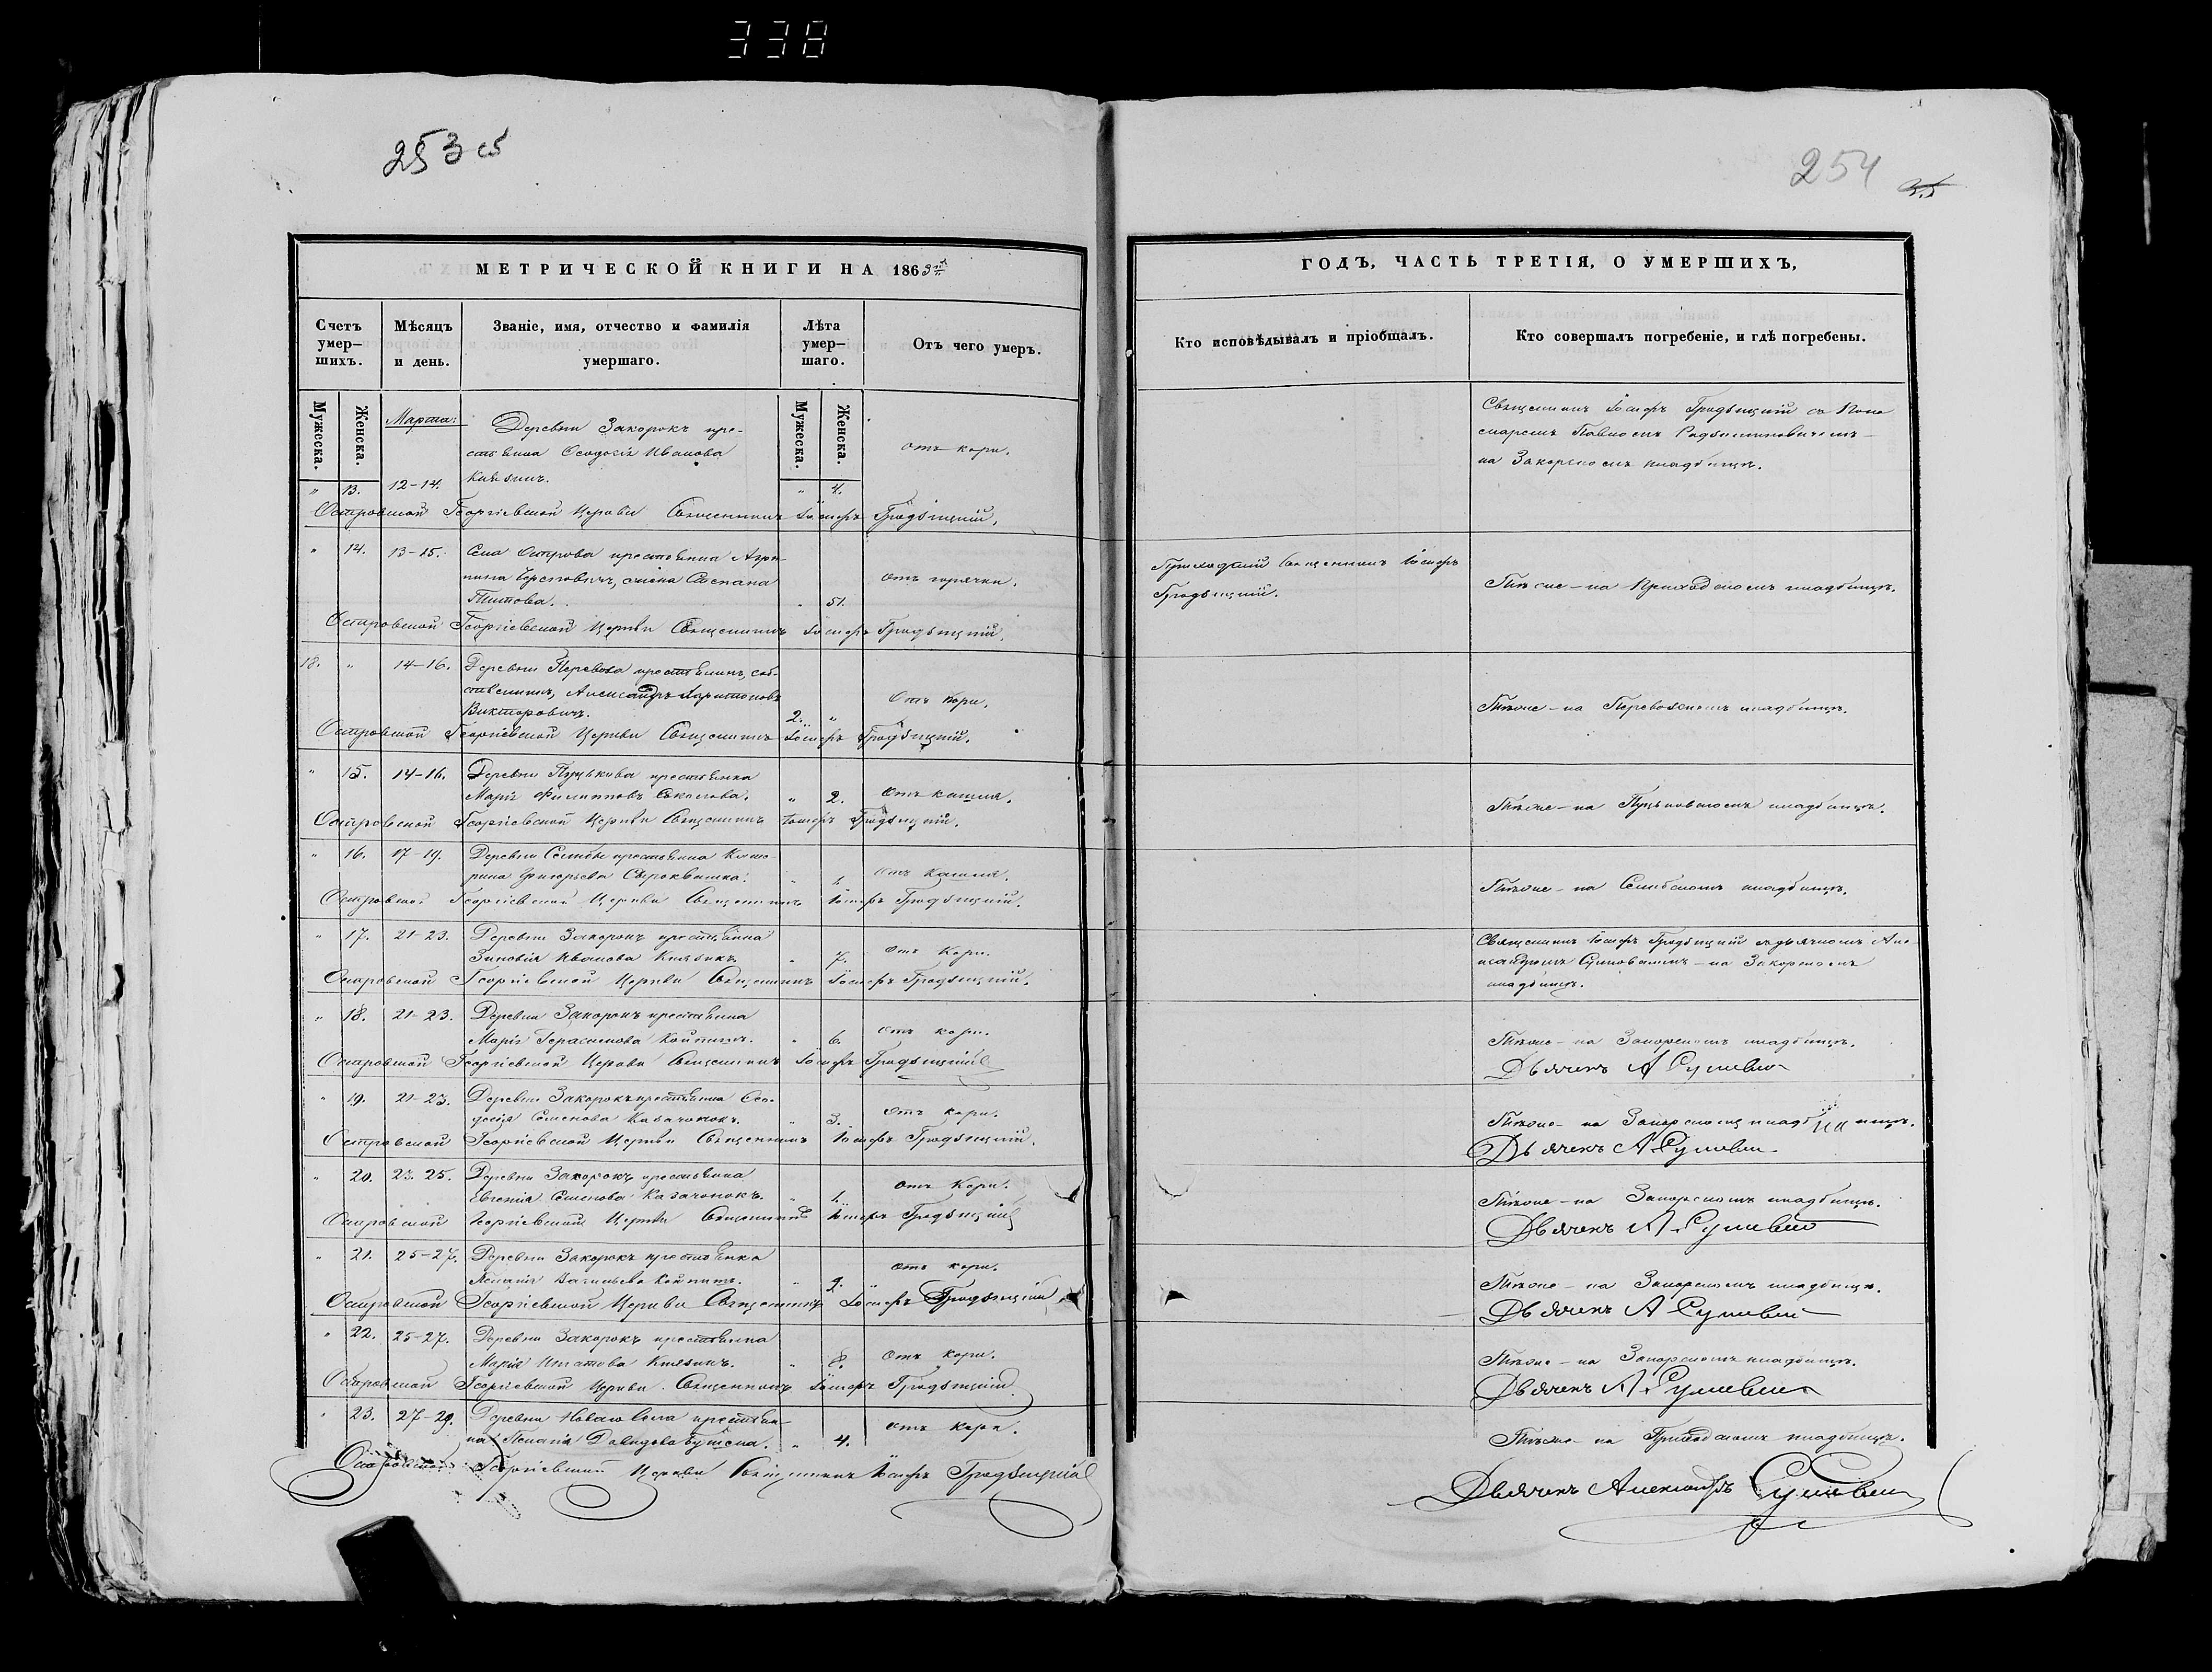 338
253 об
254
35
МЕТРИЧЕСКОЙ КНИГИ НА 1863й
ГОДЪ, ЧАСТЬ ТРЕТІЯ, О УМЕРШИХЪ,
Счетъ умер-шихъ.
Мѣсяцъ и день.
Званіе, имя, отчество и фамилія умершаго.
Лѣта умер-шаго.
Отъ чего умеръ.
Кто исповѣдывалъ и пріобщалъ.
Кто совершалъ погребеніе, и гдѣ погребены.
Мужеска.
Женска.
Мужеска.
Женска.
Марта:
Деревни Закорокъ кре-
стьянка Ѳеодосія Иванова
Князикъ.
" 13. 12-14. " 4. отъ кори.
Священникъ Іосифъ Гродѣцкій съ Поно
маремъ Павломъ
на Закорскомъ кладбищѣ.
Островской Георгіевской Церкви Священникъ Іосифъ Гродѣцкій.
" 14. 13-15. Села Острова крестьянка Агри-
пина жена Степана
Титова. " 51. отъ горячки.
Приходскій Священникъ Іосифъ
Гродѣцкій.
Тѣже - на Приходскомъ кладбищѣ.
Островской Георгіевской Церкви Священникъ Іосифъ Гродѣцкій.
18. " 14-16. Деревни Перевоза крестьянинъ, соб-
ственникъ, Александръ Харитоновъ
Викторовичъ. 2. " Отъ Кори.
Тѣже - на Перевозскомъ кладбищѣ.
Островской Георгіевской Церкви Священникъ Іосифъ Гродѣцкій.
" 15. 14-16. Деревни Пуцькова крестьянка
Марія Филиппова Соколова. " 2. отъ кашля.
Тѣже - на Пуцьковскомъ кладбищѣ.
Островской Георгіевской Церкви Священникъ Іосифъ Гродѣцкій.
" 16. 17-19. Деревни крестьянка Кате-
рина Григорьева Сыроквашка. " 1. отъ Кашля.
Тѣже - на кладбищѣ.
Островской Георгіевской Церкви Священникъ Іосифъ Гродѣцкій.
" 17. 21-23. Деревни Закорокъ крестьянка
Зиновія Иванова Князикъ. " 7. отъ Кори.
Священникъ Іосифъ Гродѣцкій съ дьячкомъ Але-
ксандромъ - на Закорскомъ
кладбищѣ.
Островской Георгіевской Церкви Священникъ Іосифъ Гродѣцкій.
" 18. 21-23. Деревни Закорокъ крестьянка
Марія Герасимова Койпитъ. " 6. отъ кори.
Тѣже - на Закорскомъ кладбищѣ.
Дьячекъ А
Островской Георгіевской Церкви Священникъ Іосифъ Гродѣцкій
" 19. 21-23. Деревни Закорокъ крестьянка Ѳео-
досія Семенова Казачонокъ. " 3. отъ кори.
Тѣже - на Закорскомъ кладбищѣ.
Дьячекъ А
Островской Георгіевской Церкви Священникъ Іосифъ Гродѣцкій.
" 20. 23-25. Деревни Закорокъ крестьянка
Евгенія Семенова Казачонокъ. " 1. отъ Кори.
Тѣже - на Закорскомъ кладбищѣ.
Дьячекъ А.
Островской Георгіевской Церкви Священникъ Іосифъ Гродѣцкій
" 21. 25-27. Деревни Закорокъ крестьянка
Васильева Койпитъ. " отъ кори.
Тѣже - на Закорскомъ кладбищѣ.
Дьячекъ А
Островской Георгіевской Церкви Священникъ Іосифъ Гродѣцкій
" 22. 25-27. Деревни Закорокъ крестьянка
Марія Игнатова Князикъ. " 8. отъ кори.
Тѣже - на Закорскомъ кладбищѣ.
Дьячекъ А.
Островской Георгіевской Церкви Священникъ Іосифъ Гродѣцкій
" 23. 27-29. Деревни Новаго Села крестьян-
ка Давидова " 4. отъ кори.
Тѣже - на Приходскомъ кладбищѣ.
Островской Георгіевской Церкви Священникъ Іосифъ Гродѣцкій
Дьячекъ Александръ